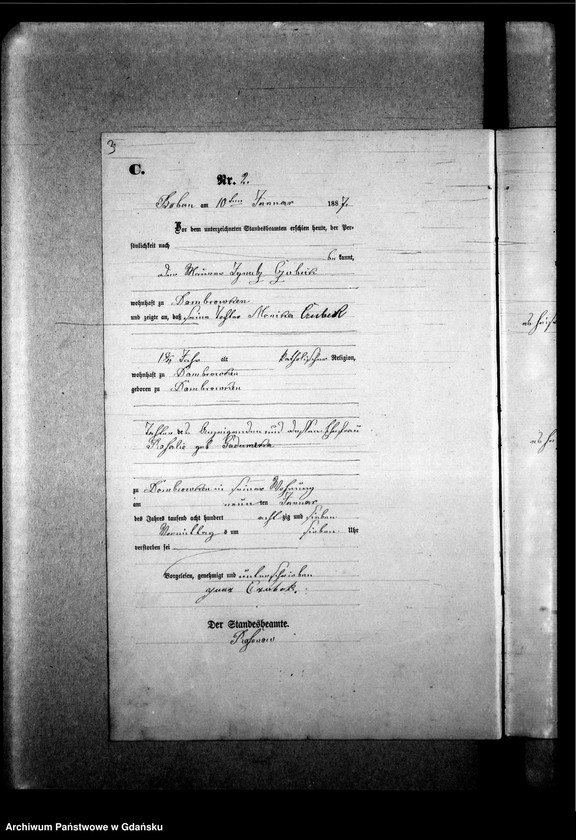 3
C.
Nr. 2.
am 10ten Januar 1887.
Vor dem unterzeichneten Standesbeamten erschien heute, der Per-
sönlichkeit nach
be kannt,
der Maurer Ignatz Czubek
wohnhaft zu Dombrowken
und zeigte an, daß seine Tochter Monika Czubek
1 1/2 Jahr alt katholischer Religion,
wohnhaft zu Dombrowken
geboren zu Dombrowken
Tochter des Anzeigenden und dessen Ehefrau
Rosalie geb.
zu Dombrowken in seiner Wohnung
am neun ten Januar
des Jahres tausend acht hundert acht zig und sieben
Vormittag s um sieben Uhr
verstorben sei
Vorgelesen, genehmigt und unterschrieben
Czubek.
Der Standesbeamte.
as
as
Archiwum Państwowe w Gdańsku